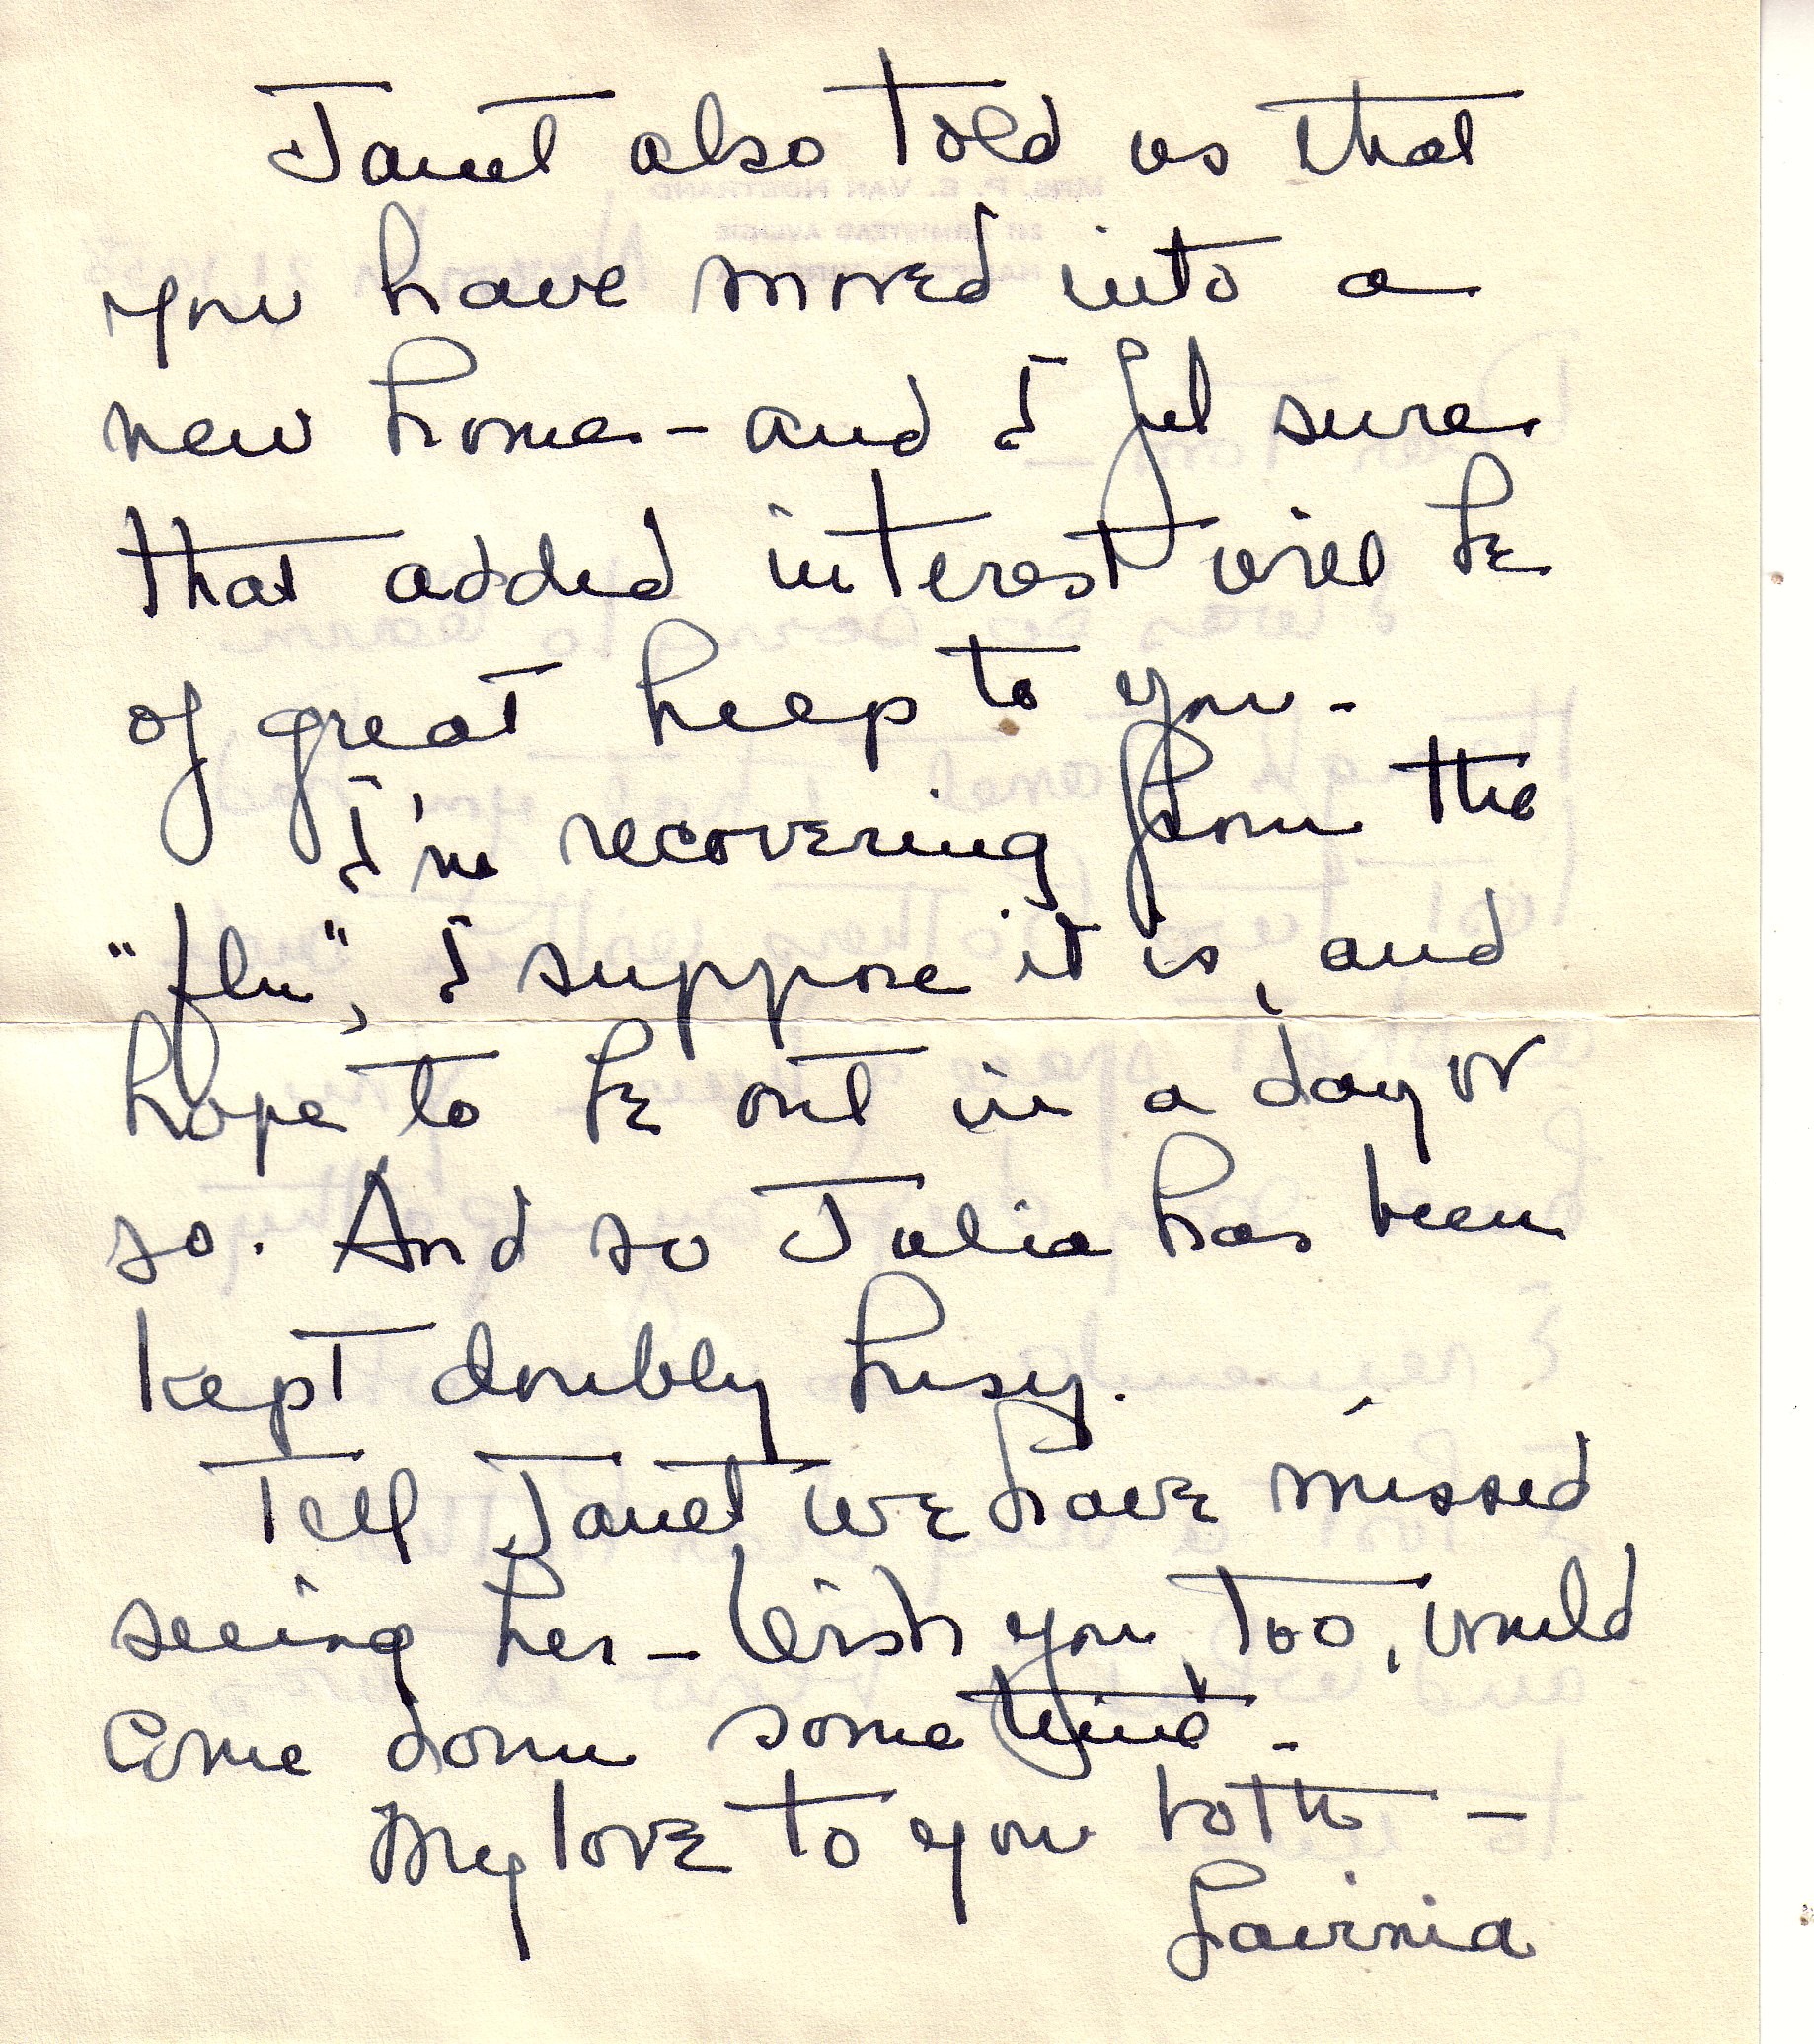 Janet also told us that
you have moved into a
new home - and I feel sure
that added interest will be
of great help to you -
I'm recovering from the
"flu", I suppose it is, and
hope to be out in a day or
so. And so Julia has been
kept doubly busy.
Tell Janet we have missed
seeing her - Wish you, too, would
come down some time -
My love to you both -
Lavinia